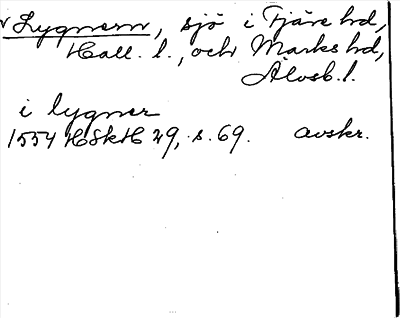 Lygnern, sjö i Fjäre hd,
Hall. l., och Marks hd,
Älvsb. l.
i lygner
1554 HSkH 29, s. 69. avskr.